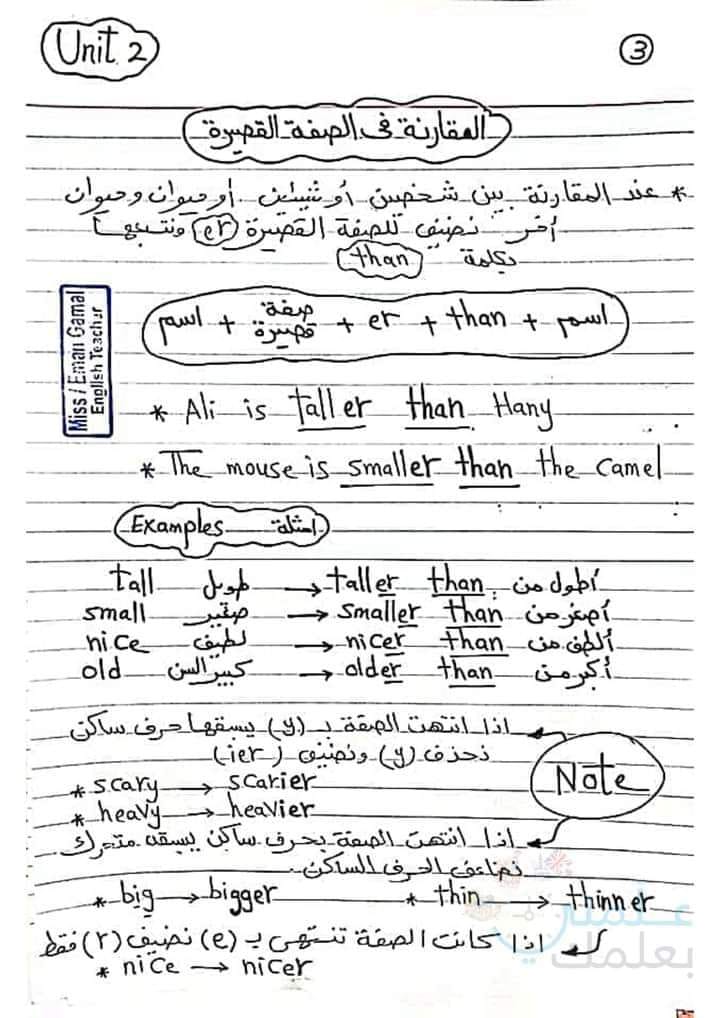 Unit 2
3
المقارنة فى الصفة القصيرة
* عند المقارنة بين شخصين أو شيئين أو حيوان وحيوان
آخر نضيف للصفة القصيرة (er) ونتبعها
بكلمة than
اسم + صفة قصيرة + er + than + اسم
Miss / Eman Gamal
English Teacher
* Ali is taller than Hany
* The mouse is smaller than the camel
Examples امثلة
tall طويل → taller than أطول من
small صغير → smaller than أصغر من
nice لطيف → nicer than ألطف من
old كبير السن → older than أكبر من
Note
اذا انتهت الصفة بـ (y) يسبقها حرف ساكن
نحذف (y) ونضيف (ier)
* scary → scarier
* heavy → heavier
اذا انتهت الصفة بحرف ساكن يسبقه متحرك
نضاعف الحرف الساكن.
* big → bigger * thin → thinner
اذا كانت الصفة تنتهى بـ (e) نضيف (r) فقط
* nice → nicer
علمني
بعلمك